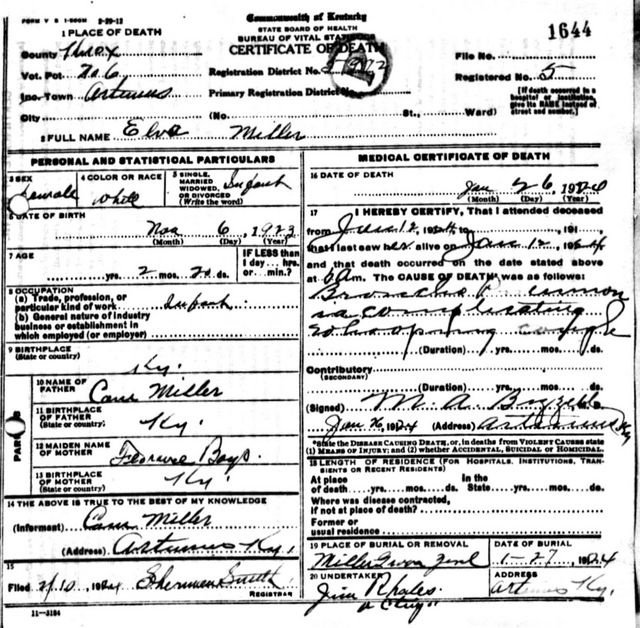 FORM V S 1-500M 9-29-12
Commonwealth of Kentucky
STATE BOARD OF HEALTH
BUREAU OF VITAL STATISTICS
CERTIFICATE OF DEATH
1644
1 PLACE OF DEATH
County Knox
Vot. Pct. No 6
Inc. Town Artemus
City
Registration District No.
Primary Registration District No.
(No. St., Ward)
File No.
Registered No. 5
[If death occurred in a hospital or institution, give its NAME instead of street and number.]
2 FULL NAME Elva Miller
PERSONAL AND STATISTICAL PARTICULARS
3 SEX
Female
4 COLOR OR RACE
White
5 SINGLE, MARRIED WIDOWED, OR DIVORCED (Write the word)
Infant
6 DATE OF BIRTH
Nov 6, 1923
(Month) (Day) (Year)
7 AGE
yrs. 2 mos. 20 ds.
IF LESS than 1 day ... hrs. or ... min.?
8 OCCUPATION
(a) Trade, profession, or particular kind of work Infant
(b) General nature of industry business or establishment in which employed (or employer)
9 BIRTHPLACE
(State or country) Ky.
PARENTS
10 NAME OF FATHER Cam Miller
11 BIRTHPLACE OF FATHER (State or country) Ky.
12 MAIDEN NAME OF MOTHER Bays
13 BIRTHPLACE OF MOTHER (State or country) Ky.
14 THE ABOVE IS TRUE TO THE BEST OF MY KNOWLEDGE
(Informant) Cam Miller
(Address) Artemus Ky.
15
Filed 2/10, 1924 Sherman Smith
REGISTRAR
11-3184
MEDICAL CERTIFICATE OF DEATH
16 DATE OF DEATH
Jan 26, 1924
(Month) (Day) (Year)
17 I HEREBY CERTIFY, That I attended deceased
from Jan 12, 1924 to , 191
that I last saw her alive on Jan 12, 1924
and that death occurred on the date stated above
at 6 am. The CAUSE OF DEATH was as follows:
Broncho Pneumonia complicating
whooping cough
(Duration) yrs. mos. ds.
Contributory
(SECONDARY)
(Duration) yrs. mos. ds.
(Signed) M. A.
Jan 26, 1924 (Address) Artemus Ky
*State the DISEASE CAUSING DEATH, or, in deaths from VIOLENT CAUSES state (1) MEANS OF INJURY; and (2) whether ACCIDENTAL, SUICIDAL or HOMICIDAL.
18 LENGTH OF RESIDENCE (FOR HOSPITALS, INSTITUTIONS, TRANSIENTS OR RECENT RESIDENTS)
At place of death yrs. mos. ds. In the State yrs. mos. ds.
Where was disease contracted, if not at place of death?
Former or usual residence
19 PLACE OF BURIAL OR REMOVAL
Miller
DATE OF BURIAL
1-27, 1924
20 UNDERTAKER
Jim
ADDRESS
Artemus Ky.